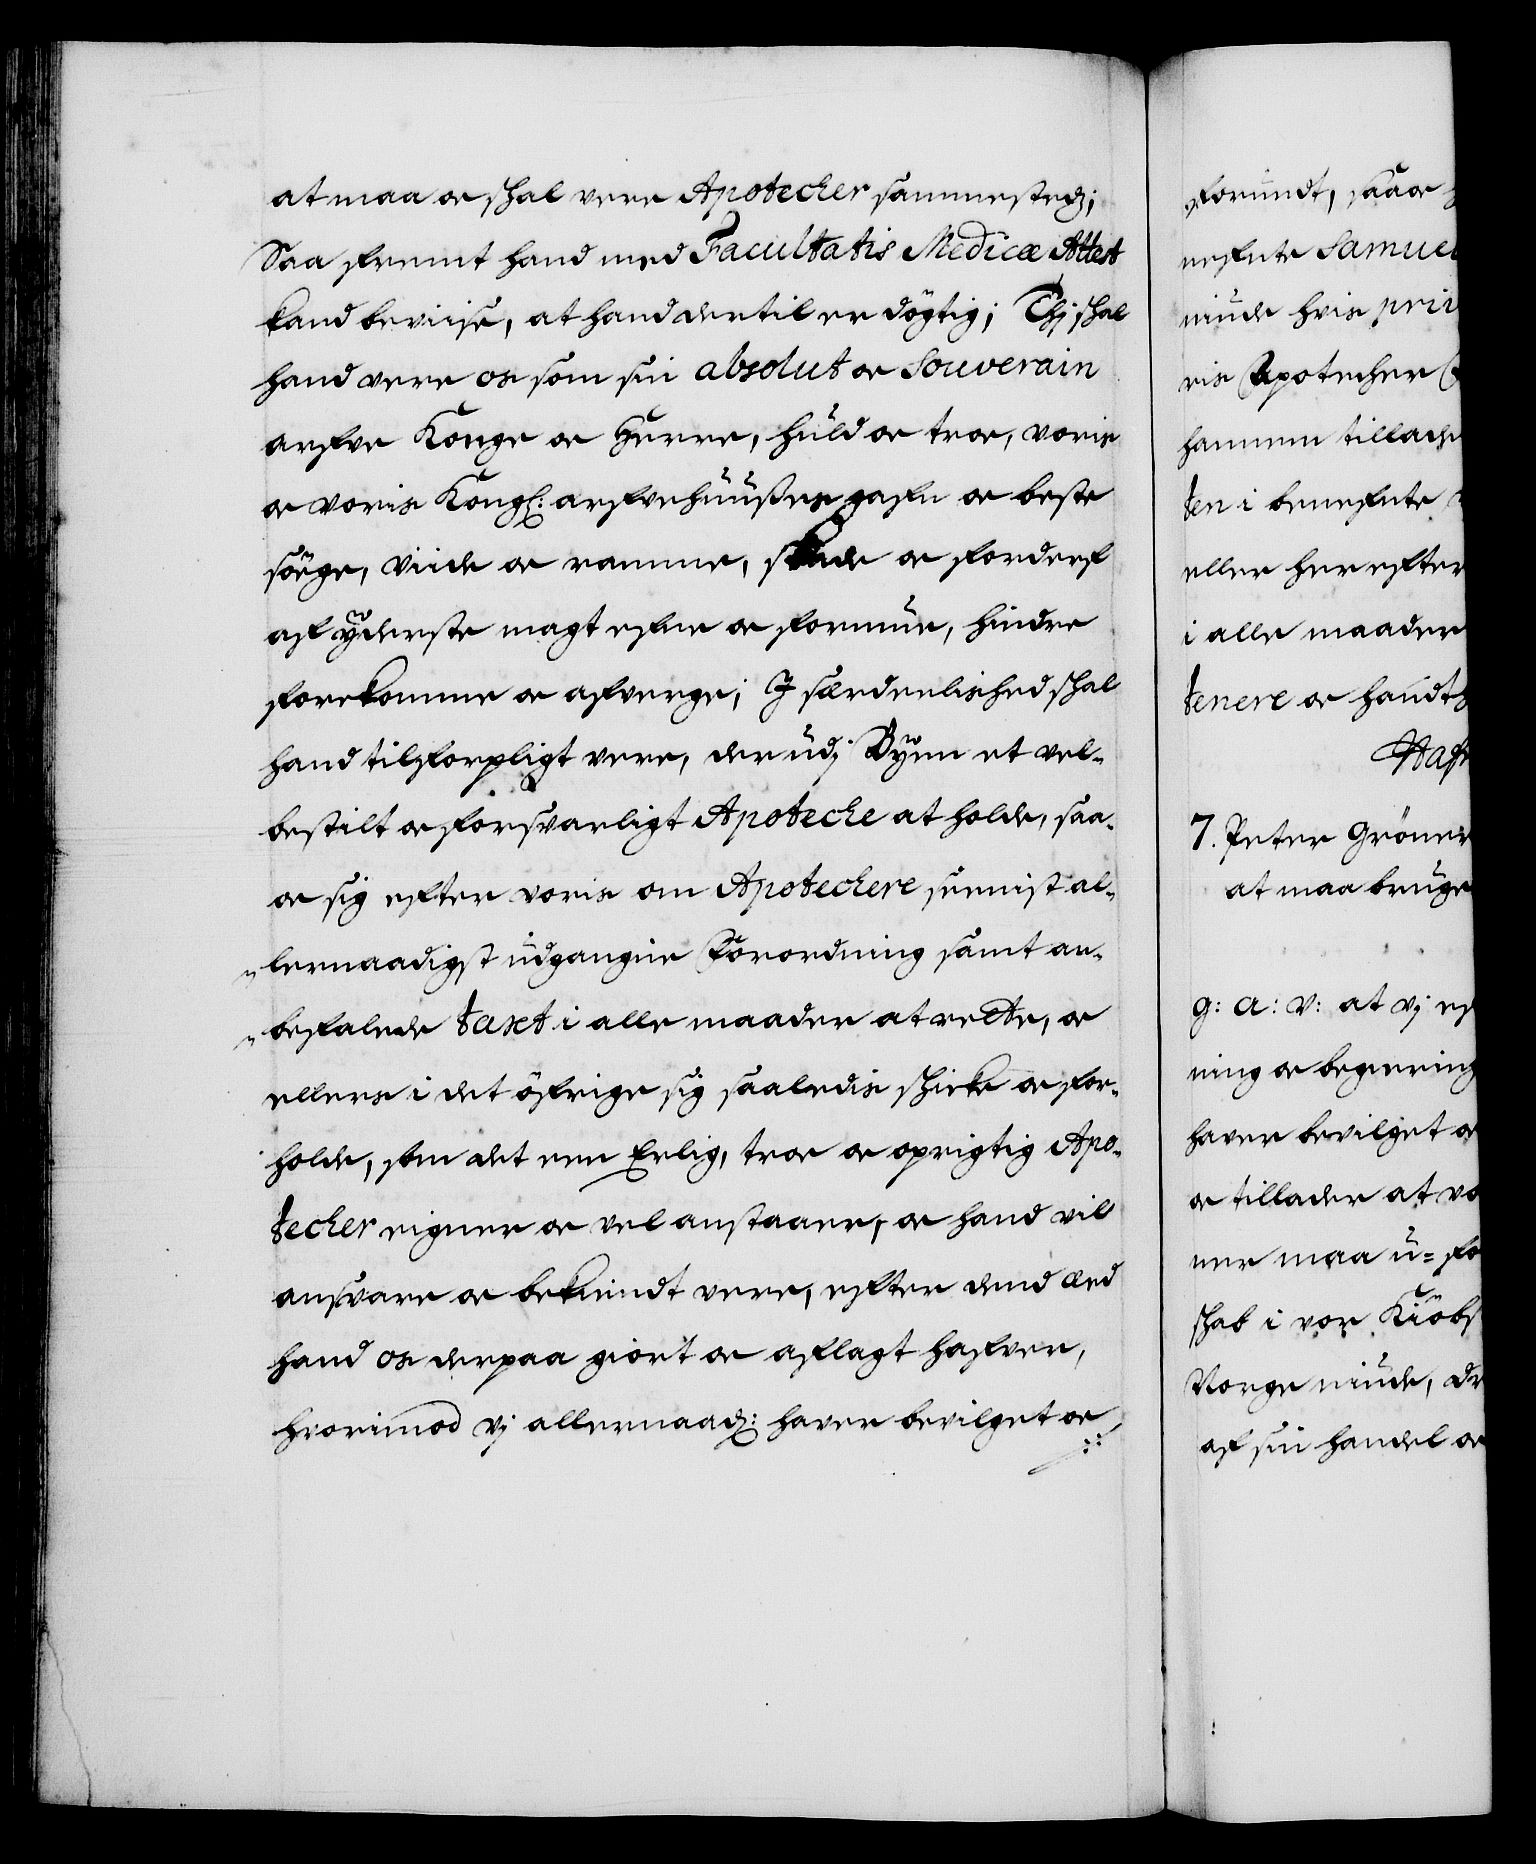 at maa oc skal vere Apotecher sammestedz;
Saa fremt hand med Facultatis Medicæ Attest
kand beviise, at hand dertil er dögtig; Thj skal
hand vere os som sin absolut oc Souverain
arfve Konge oc Herre, huld oc troe, voris
oc voris Kongl: arfvehuußes gafn oc beste
söge, viide oc ramme, skade oc forderf
af yderste magt efne oc formue, hindre
forekomme oc afverge; J særdeelished skal
hand tilforpligt vere, der udj Byen et vel-
bestilt oc forsvarligt Apoteche at holde, saa-
oc sig efter voris om Apotechere seenist al-
lernaadigst udgangne Forordning samt an-
befalede taxt i alle maader at rette, oc
ellers i det öfrige sig saaledis skicke oc for-
holde, som det een Erlig, troe oc oprigtig Apo-
techer eigner oc vel anstaaer, oc hand vil
ansvare oc bekiendt vere, efter dend æed
hand os derpaa giort oc aflagt hafver,
hvorimod vj allernaad: haver bevilget oc
forundt, saa oc
nefnte Samuel
niude hvis pri
ris Apotecher
hannem tillade
ten i benefnte
eller herefter
i alle maader
tenere oc handt
Hafn
7. Peter Gröner
at maa bruge
G: A: V: at vj ef
ning oc begiering
haver bevilget oc
oc tillader at vo
ner maa u-for
skab i vor Kiöbs
Norge niude, de
af sin handel oc